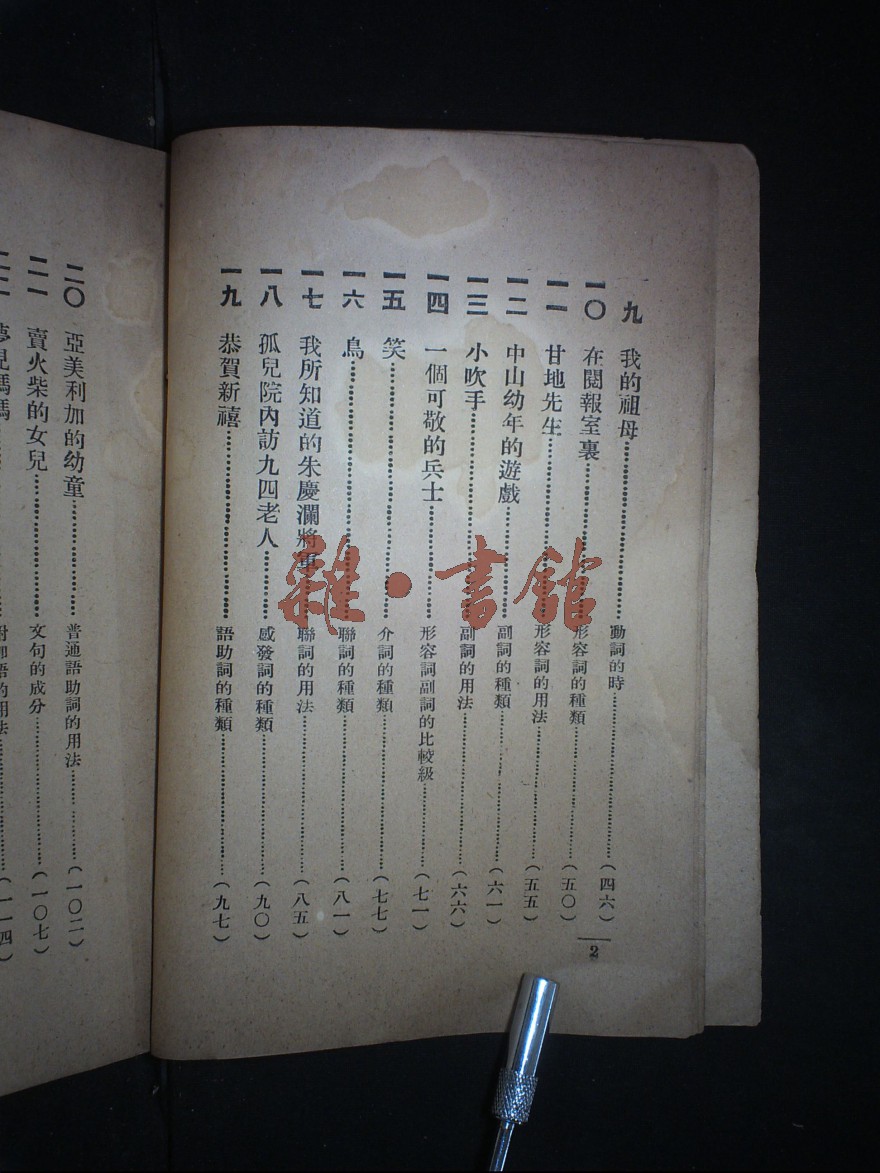 九 我的祖母……動詞的時……(四六)
一〇 在閱報室裏……形容詞的種類……(五〇)
一一 甘地先生……形容詞的用法……(五五)
一二 中山幼年的遊戲……副詞的種類……(六一)
一三 小吹手……副詞的用法……(六六)
一四 一個可敬的兵士……形容詞副詞的比較級……(七一)
一五 笑……介詞的種類……(七七)
一六 鳥……聯詞的種類……(八一)
一七 我所知道的朱慶瀾將軍……聯詞的用法……(八五)
一八 孤兒院內訪九四老人……感發詞的種類……(九〇)
一九 恭賀新禧……語助詞的種類……(九七)
2
二〇 亞美利加的幼童……普通語助詞的用法……(一〇二)
二一 賣火柴的女兒……文句的成分……(一〇七)
(一一四)
雜·書館